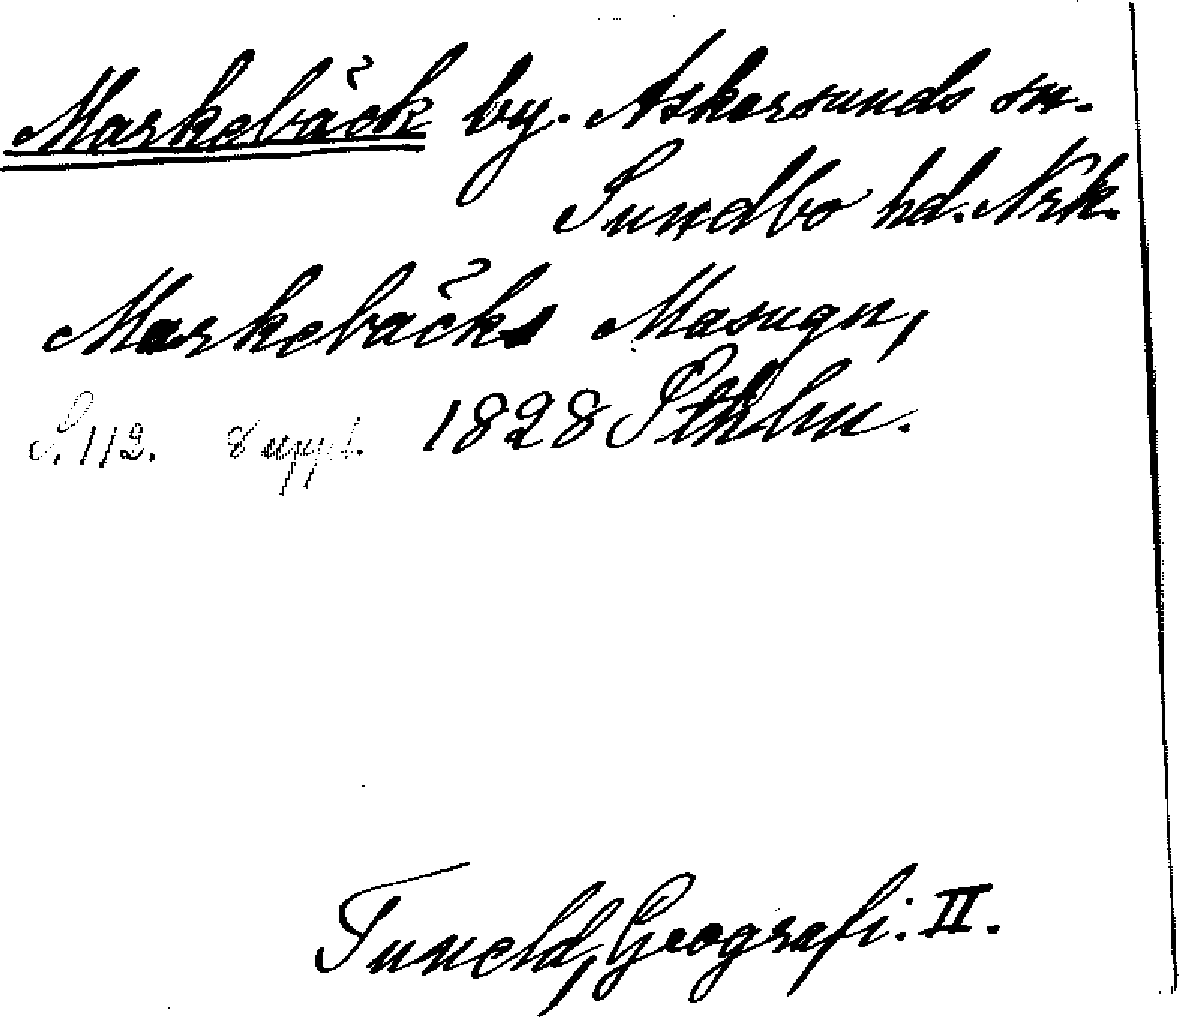 Markebäck by. Askersunds sn.
Sundbo hd. Nrk.
Markebäcks Masugn,
S. 112. 8 uppl. 1828 Sthlm.
Tuneld, Geografi. II.